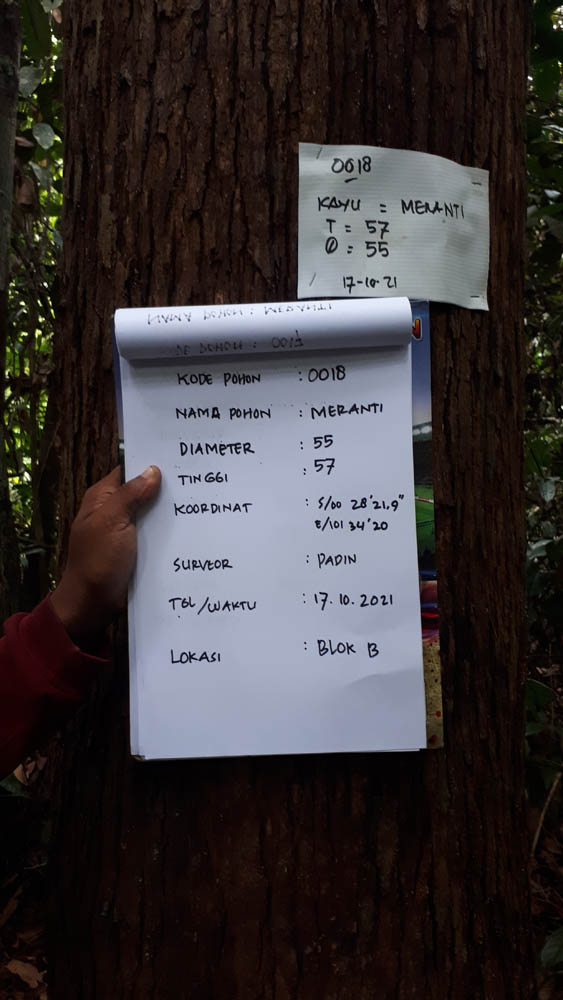 0018
KAYU = MERANTI
T = 57
Ø = 55
17-10-21
KODE POHON : 0018
NAMA POHON : MERANTI
DIAMETER : 55
TINGGI : 57
KOORDINAT : S/00 28'21.9"
E/101 34'20
SURVEOR : PADIN
TGL/WAKTU : 17.10.2021
LOKASI : BLOK B